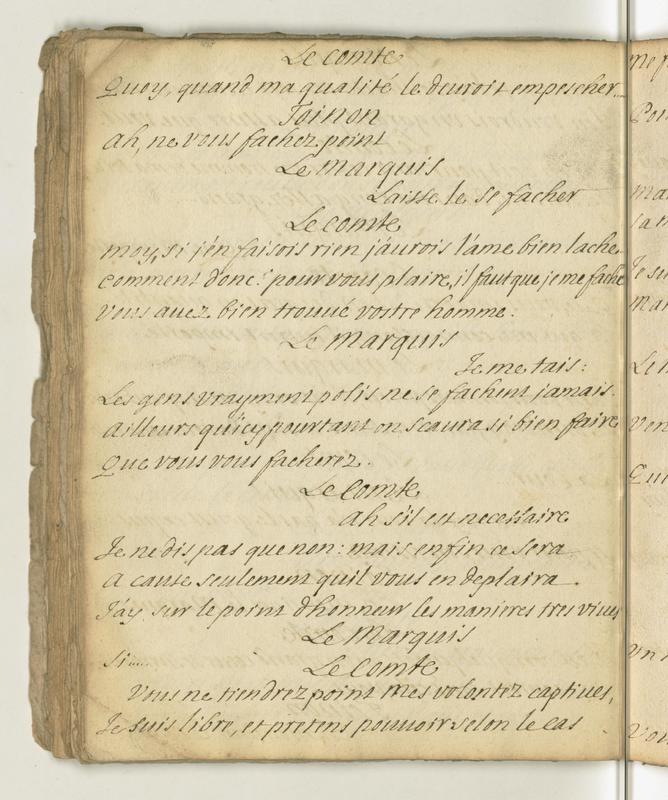 Le comte
Quoy, quand ma qualité le deuroit empescher...
Toinon
Ah, ne vous fachez point
Le Marquis
Laisse le se facher
Le comte
moy, si j'en faisois rien j'aurois l'ame bien lache
comment donc? pour vous plaire, il faut que je me fache
vous auez bien trouué vostre homme.
Le Marquis
Je me tais:
Les gens vrayment polis ne se fachent jamais.
Ailleurs qu'icy pourtant on scaura si bien faire
Que vous vous facherez.
Le Comte
Ah s'il est necessaire
Je ne dis pas que non: mais enfin ce sera
A cause seulement quil vous en deplaira.
J'ay sur le point dhonneur les manieres tres viues
Le Marquis
Si.....
Le Comte
Vous ne tiendrez point mes volontez captiues,
Je suis libre, et pretens pouuoir selon le cas
me
Po
ma
sa
Je su
Mar
Le
ven
Qui
un
Vou